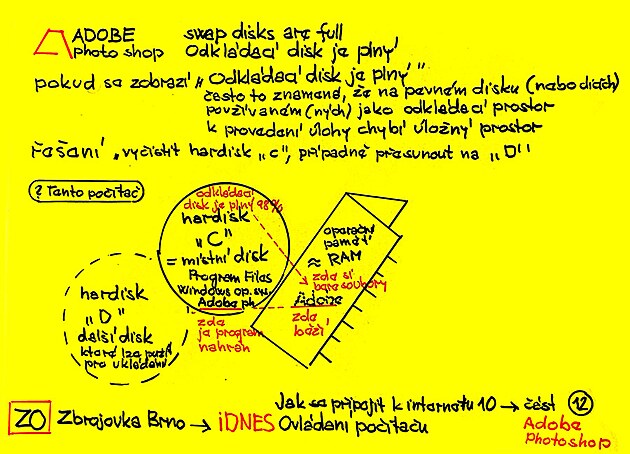 ADOBE swap disks are full
photo shop Odkládací disk je plný
pokud se zobrazí "Odkládací disk je plný"
často to znamená, že na pevném disku (nebo discích)
používaném (ných) jako odkládací prostor
k provedení úlohy chybí úložný prostor
řešení "vyčistit hardisk "C", případně přesunout na "D"
? Tento počítač
odkládací
disk je plný 98%
hardisk
"C"
= místní disk
Program Files
Windows op. sys.
Adobe ph
operační
paměť
≈ RAM
zde si
bere soubory
Adobe
zde
běží
hardisk
"D"
další disk
které lze použít
pro ukládání
zde
je program
nahrán
ZO Zbrojovka Brno → iDNES
Jak se připojit k internetu 10 → část 12
Ovládání počítače
Adobe
Photoshop